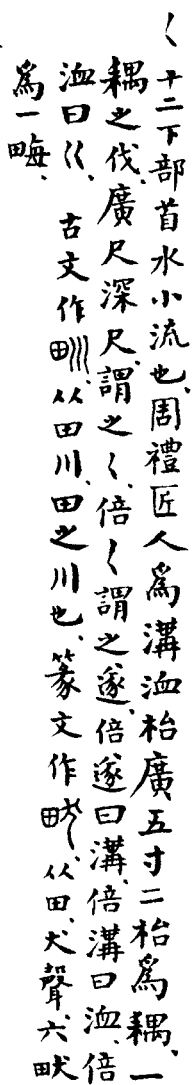 く十二下部首水小流也、周禮匠人爲溝洫枱廣五寸二枱爲耦、一
耦之伐、廣尺深尺、謂之く、倍く謂之遂、倍遂曰溝、倍溝曰洫、倍
洫曰巜、古文作甽、从田川、田之川也、篆文作畎、从田、犬聲、六畎
爲一畮、